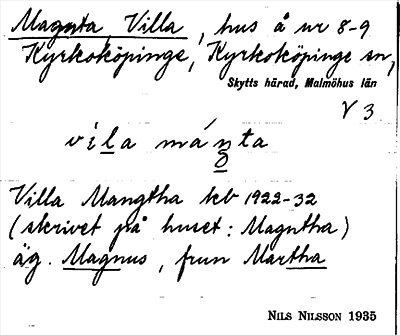 Magnta, Villa, hus å nr 8-9
Kyrkoköpinge, Kyrkoköpinge sn,
Skytts härad, Malmöhus län
V 3
vila mánta
Villa Mangtha kb 1922-32
(skrivet på huset: Magntha)
äg. Magnus, frun Martha
NILS NILSSON 1935